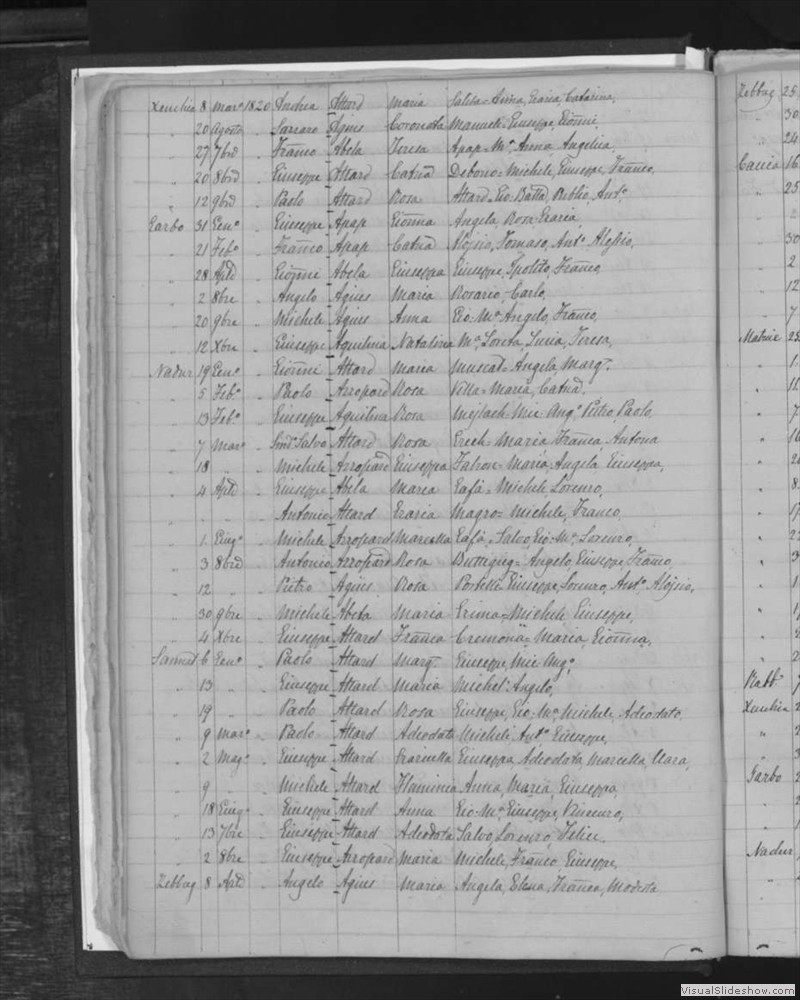 Xeuchia 8 Mar° 1820 Andrea Attard Maria Saliba= Anna, Grazia, Catarina,
" 20 Agosto " Saverio Agius Coronata Manueli= Giuseppe, Giõnni,
" 27 7bre " Franco Abela Teresa Apap= Mª Anna, Angelica,
" 20 8bre " Giuseppe Attard Catnã Debono= Michele, Giuseppe, Franco,
" 12 9bre " Paolo Attard Rosa Attard, Gio: Batta, Publio, Ant°.
Garbo 31 Gen° " Giuseppe Apap Giõnna Angela, Rosa, Grazia,
" 21 Feb° " Franco Apap Catnã Alojsio, Tomaso, Ant° Alojsio,
" 28 Aple " Giõnni Abela Giuseppa Giuseppe, Ipolito, Franco,
" 2 8bre " Angelo Agius Maria Rosario, Carlo,
" 20 9bre " Michele Agius Anna Gio: Mª Angelo, Franco,
" 12 Xbre " Giuseppe Aquilina Natalizia Mª Loreta, Lucia, Teresa,
Nadur 19 Gen° " Giõnni Attard Maria Muscat= Angela, Marg.
" 5 Feb° " Paolo Azzopard Rosa Vella= Maria, Catnã,
" 13 Feb° " Giuseppe Aquilina Rosa Mejlach= Mic: Ang° Pietro, Paolo,
" 7 Mar° " Salvo Attard Rosa Grech= Maria Franca Antona
" 18 " " Michele Azzopard Giuseppa Falzon= Maria, Angela, Giuseppa,
" 4 Aple " Giuseppe Abela Maria Cafà= Michele Lorenzo,
" " " Antonio Attard Grazia Magro= Michele, Franco
" 1 Giug° " Michele Azzopard Marcella Cafà= Salvo, Gio: Mª Lorenzo,
" 3 8bre " Antonio Azzopard Rosa Buttigieg= Angelo, Giuseppe, Franco,
" 12 " " Pietro Agius Rosa Portelli= Giuseppe, Lorenzo, Ant° Alojsio,
" 30 9bre " Michele Abela Maria Michele, Giuseppe,
" 4 Xbre " Giuseppe Attard Franca Cremona= Maria, Giõnna,
Sannat 6 Gen° " Paolo Attard Marg. Giuseppe, Mic: Ang°,
" 13 " " Giuseppe Attard Maria Michel= Angelo,
" 19 " " Paolo Attard Rosa Giuseppe, Gio: Mª Michele, Adeodato,
" 9 Mar° " Paolo Attard Adeodata Michele, Ant° Giuseppe,
" 2 Mag° " Giuseppe Attard Graziella Giuseppa, Adeodata, Marcella, Clara,
" 9 " " Michele Attard Flaminea Anna, Maria, Giuseppa,
" 18 Giug° " Giuseppe Attard Anna Gio: Mª Giuseppe, Vincenzo,
" 13 7bre " Giuseppe Attard Adeodata Salvo, Lorenzo, Felice,
" 2 8bre " Giuseppe Azzopard Maria Michele, Franco, Giuseppe,
Zebbug 8 Aple " Angelo Agius Maria Angela, Elena, Franca, Modesta
Zebbug 25
30
24
Caccia 16
25
30
2
12
7
Xeuchia
Garbo
Nadur
VisualSlideshow.com